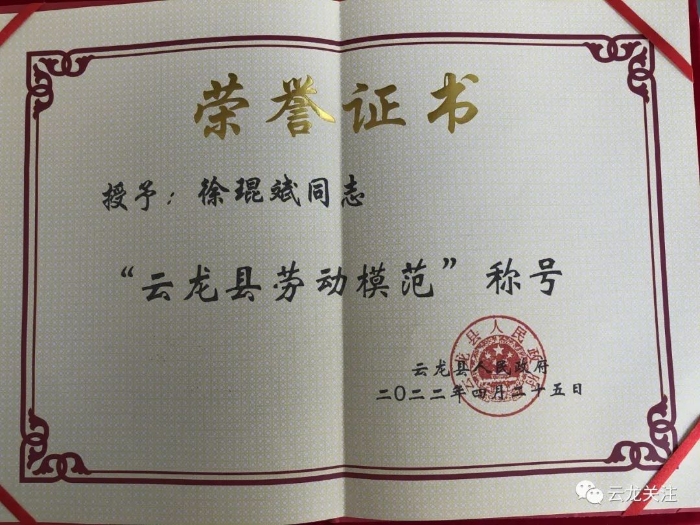 荣誉证书
授予：徐琨斌同志
“云龙县劳动模范”称号
云龙县人民政府
云龙县人民政府
二〇二二年四月二十五日
云龙关注